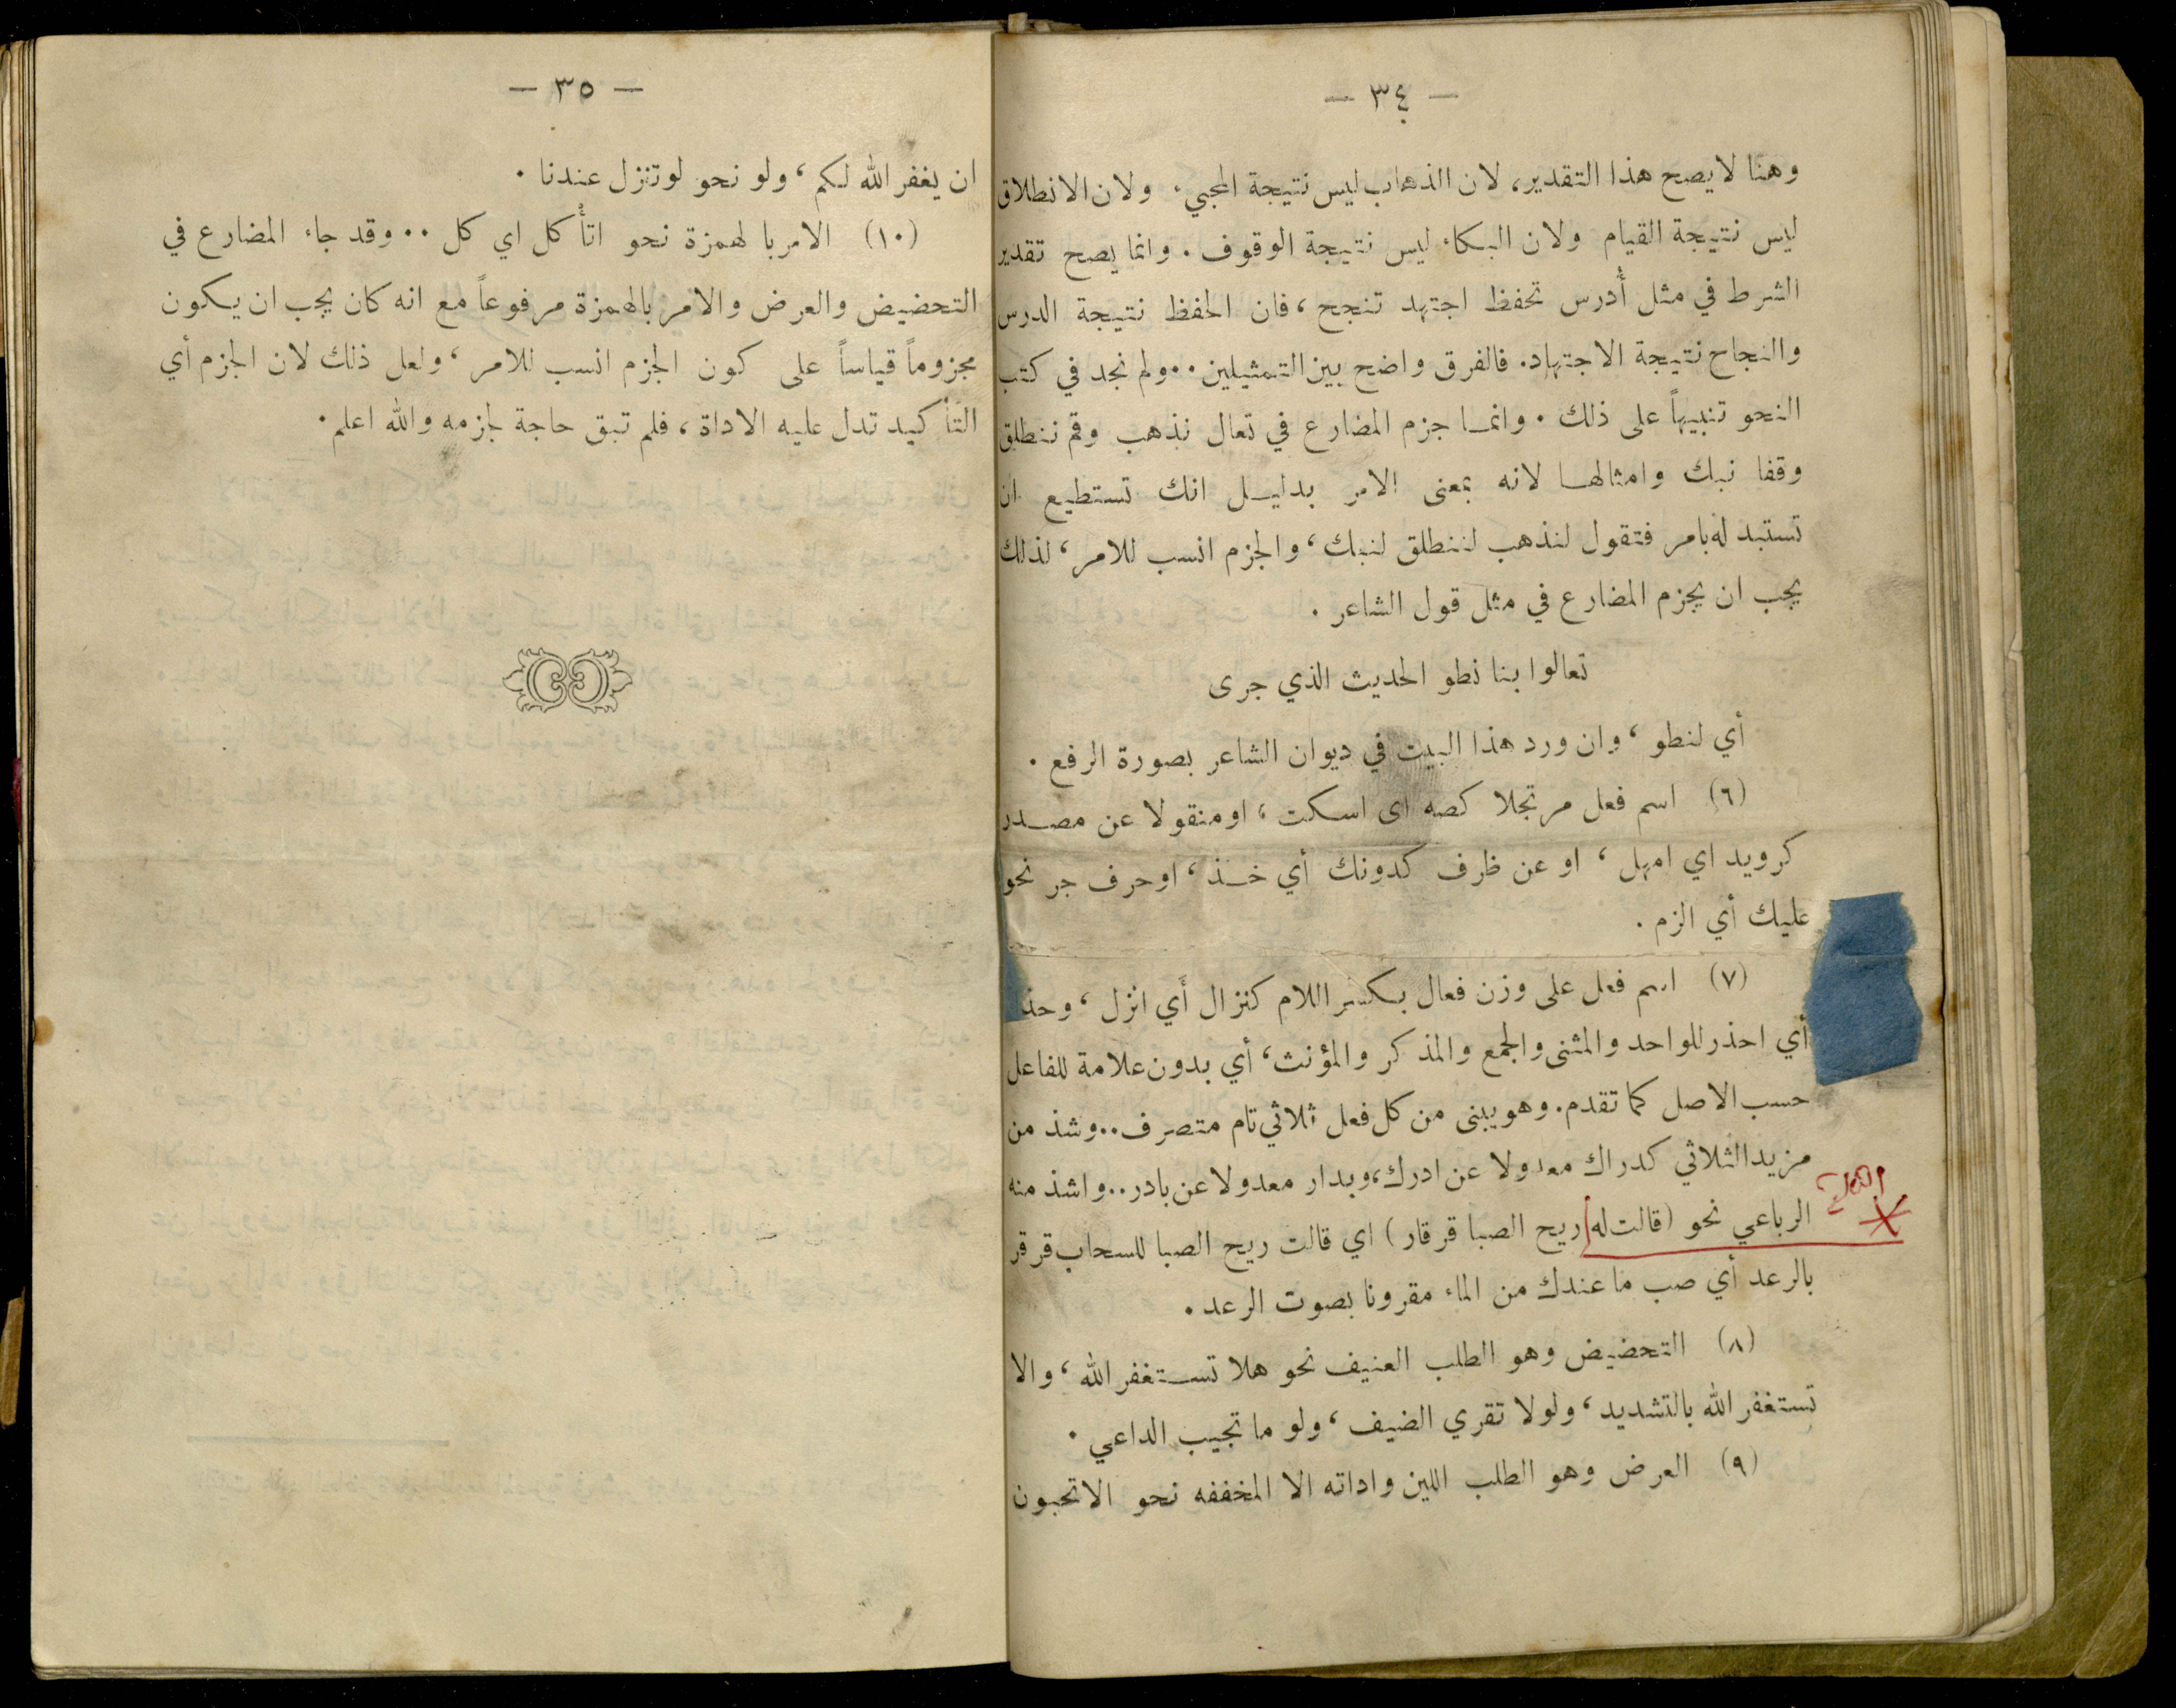 — ٣٤ —
وهنا لا يصح هذا التقدير، لان الذهاب ليس نتيجة المجيء ولان الانطلاق
ليس نتيجة القيام ولان البكاء ليس نتيجة الوقوف . وانما يصح تقدير
الشرط في مثل أُدرس تحفظ اجتهد تنجح ، فان الحفظ نتيجة الدرس
والنجاح نتيجة الاجتهاد. فالفرق واضح بين التمثيلين . . ولم نجد في كتب
النحو تنبيهاً على ذلك . وانمـا جزم المضارع في تعال نذهب وقم ننطلق
وقفا نبك وامثالهـا لانه بمعنى الامر بدليـل انك تستطيع ان
تستبد له بامر فتقول لنذهب لننطلق لنبك ، والجزم انسب للامر ، لذلك
يجب ان يجزم المضارع في مثل قول الشاعر .
تعالوا بنا نطو الحديث الذي جرى
أي لنطو ، وان ورد هذا البيت في ديوان الشاعر بصورة الرفع .
(٦) اسم فعل مرتجلا كصه اى اسكت ، او منقولا عن مصـدر
كرويد اي امهل ، او عن ظرف كدونك أي خـذ ، او حرف جر نحو
عليك أي الزم .
(٧) اسم فعل على وزن فعال بكسر اللام كنزال أَي انزل ، وحذ
أي احذر للواحد والمثنى والجمع والمذكر والمؤنث ، أي بدون علامة للفاعل
حسب الاصل كما تقدم . وهو يبنى من كل فعل ثلاثي تام متصرف . . وشذ من
مزيد الثلاثي كدراك معدولا عن ادرك ، وبدار معدولا عن بادر . . واشذ منه
الرباعي نحو (قالت له ريح الصبا قرقار) اي قالت ريح الصبا للسحاب قرقر
بالرعد أي صب ما عندك من الماء مقرونا بصوت الرعد .
(٨) التحضيض وهو الطلب العنيف نحو هلا تسـتغفر الله ، والا
تستغفر الله بالتشديد ، ولولا تقري الضيف ، ولو ما تجيب الداعي .
(٩) العرض وهو الطلب اللين واداته الا المخففه نحو الا تحبون
— ٣٥ —
ان يغفر الله لكم ، ولو نحو لو تنزل عندنا .
(١٠) الامر با لهمزة نحو اتأْكل اي كل . . وقد جاء المضارع في
التحضيض والعرض والامر بالهمزة مرفوعاً مع انه كان يجب ان يـكون
مجزوماً قياساً على كون الجزم انسب للامر ، ولعل ذلك لان الجزم أي
التأكيد تدل عليه الاداة ، فلم تبق حاجة لجزمه والله اعلم .